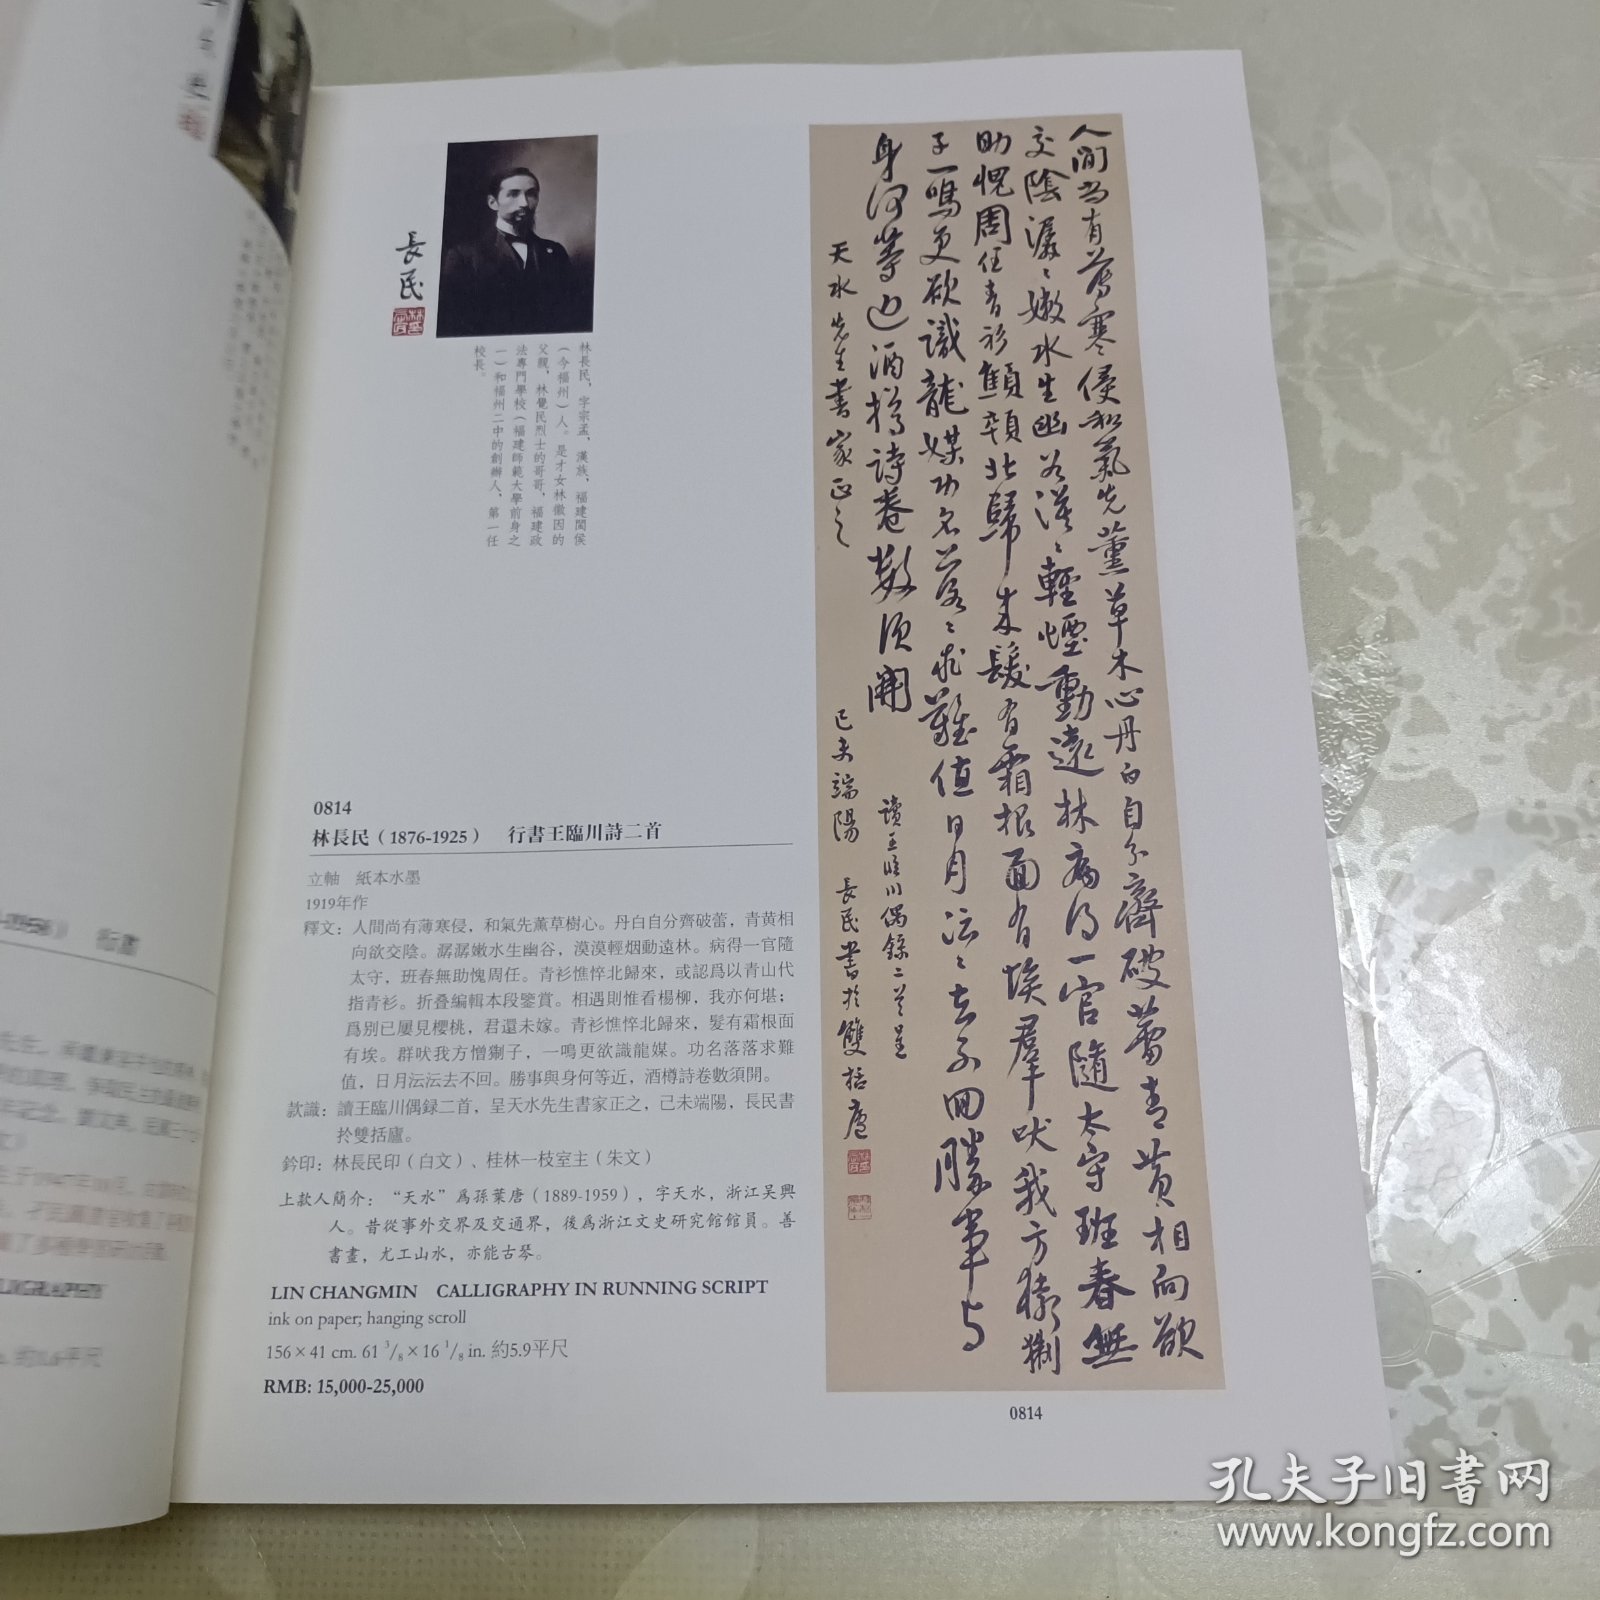 長民
林長民，字宗孟，漢族，福建閩侯
（今福州）人。是才女林徽因的
父親，林覺民烈士的哥哥，福建政
法專門學校（福建師範大學前身之
一）和福州二中的創辦人，第一任
校長。
0814
林長民（1876-1925） 行書王臨川詩二首
立軸 紙本水墨
1919年作
釋文：人間尚有薄寒侵，和氣先薰草樹心。丹白自分齊破蕾，青黄相
向欲交陰。潺潺嫩水生幽谷，漠漠輕烟動遠林。病得一官隨
太守，班春無助愧周任。青衫憔悴北歸來，或認爲以青山代
指青衫。折叠編輯本段鑒賞。相遇則惟看楊柳，我亦何堪；
爲別已屢見櫻桃，君還未嫁。青衫憔悴北歸來，髮有霜根面
有埃。群吠我方憎猘子，一鳴更欲識龍媒。功名落落求難
值，日月沄沄去不回。勝事與身何等近，酒樽詩卷數須開。
款識：讀王臨川偶録二首，呈天水先生書家正之，己未端陽，長民書
於雙括廬。
鈐印：林長民印（白文）、桂林一枝室主（朱文）
上款人簡介：“天水”爲孫葉唐（1889-1959），字天水，浙江吴興
人。昔從事外交界及交通界，後爲浙江文史研究館館員。善
書畫，尤工山水，亦能古琴。
LIN CHANGMIN CALLIGRAPHY IN RUNNING SCRIPT
ink on paper; hanging scroll
156×41 cm. 61 3/8×16 1/8 in. 約5.9平尺
RMB: 15,000-25,000
人間尚有薄寒侵和氣先薰草木心丹白自分齊破蕾青黄相向欲
交陰潺潺嫩水生幽谷漠漠輕煙動遠林病得一官隨太守班春無
助愧周任青衫顦顇北歸來髮有霜根面有埃羣吠我方憎猘
子一鳴更欲識龍媒功名落落求難值日月沄沄去不回勝事與
身何等近酒樽詩卷數須開
讀王臨川偶錄二首呈
天水先生書家正之
己未端陽 長民書於雙括廬
0814
孔夫子旧书网
www.kongfz.com